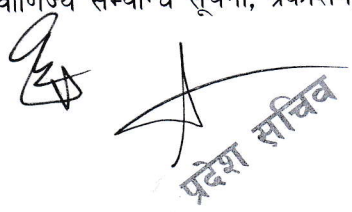 वाणिज्य सम्बन्धि सूचना, प्रकाशन
प्रदेश सचिव